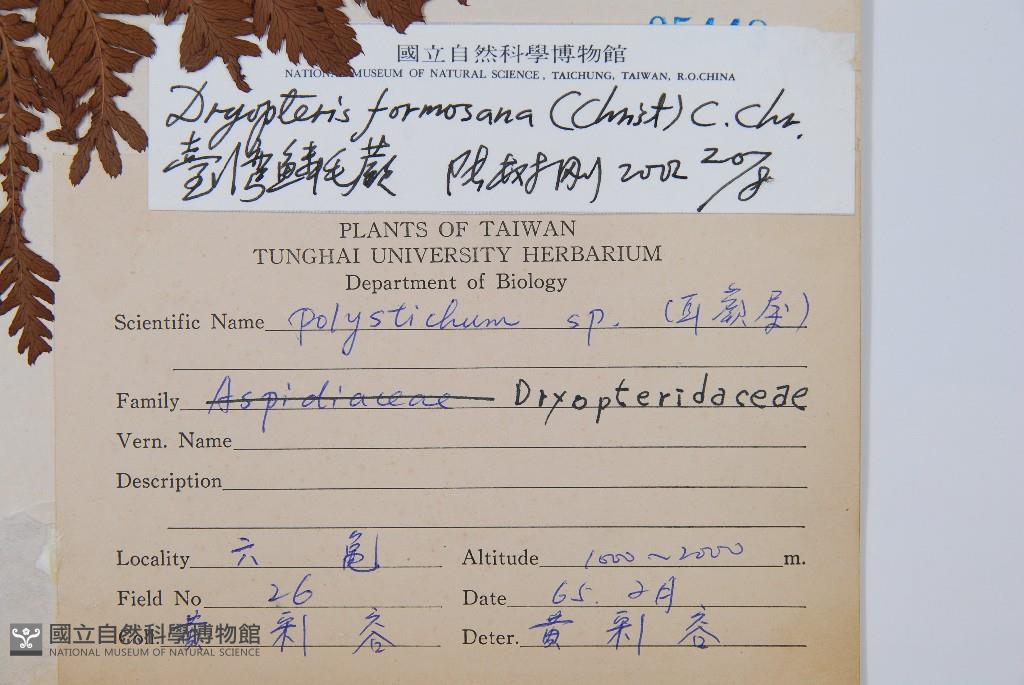 國立自然科學博物館
NATIONAL MUSEUM OF NATURAL SCIENCE, TAICHUNG, TAIWAN, R.O.CHINA
Dryopteris formosana (Christ) C. Chr.
臺灣鱗毛蕨 陳 2002 20/8
PLANTS OF TAIWAN
TUNGHAI UNIVERSITY HERBARIUM
Department of Biology
Scientific Name polystichum sp. (耳蕨屬)
Family Aspidiaceae Dryopteridaceae
Vern. Name
Description
Locality 六龜 Altitude 1000~2000 m.
Field No 26 Date 65. 2月
Coll. 黃彩容 Deter. 黃彩容
國立自然科學博物館
NATIONAL MUSEUM OF NATURAL SCIENCE